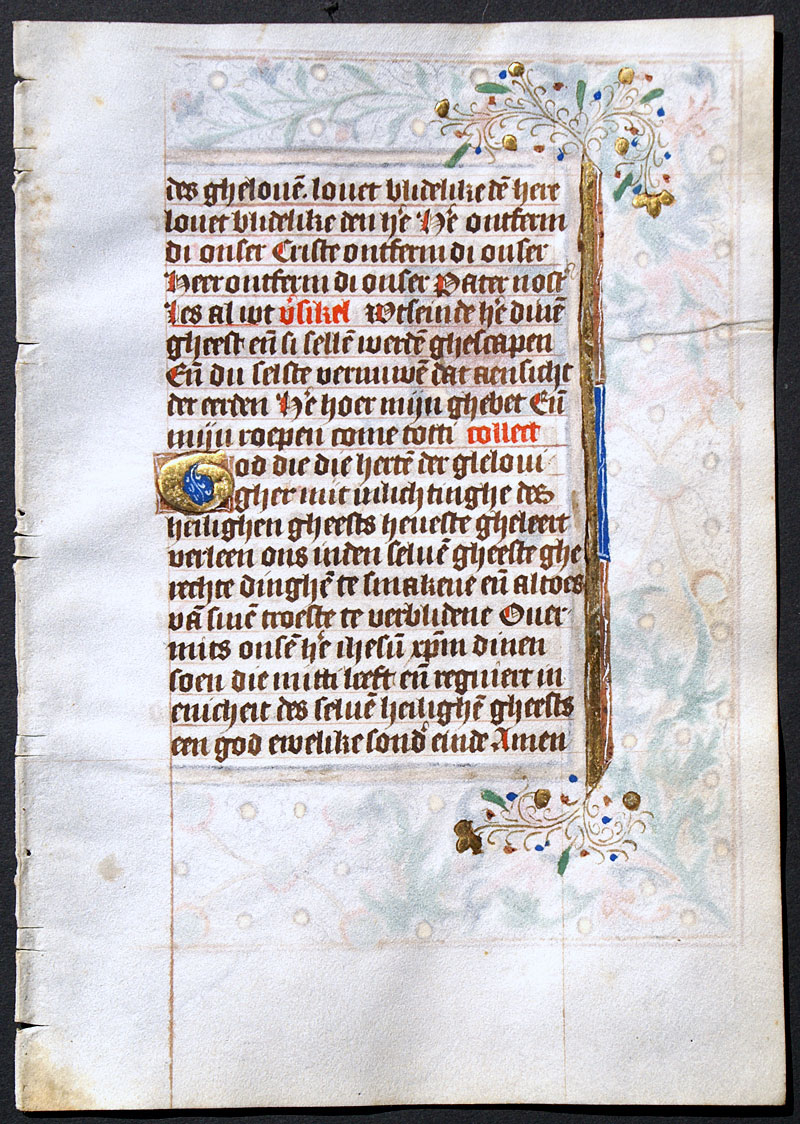 des ghelouē. louet blidelike dē here
louet blidelike den he͛ He͛ ontferm
di onser Criste ontferm di onser
Heer ontferm di onser Pater nost͛
Les al wt v͛sikel Wtseinde he͛ dinē
gheest eñ si sellē werdē ghescapen
Eñ du selste vernuwē dat aensicht
der eerden He͛ hoer mijn ghebet Eñ
mijn roepen come totti collect
God die die hertē der gleloui
gher mit inlichtinghe des
heilighen gheests heueste gheleert
verleen ons inden seluē gheeste ghe
rechte dinghē te smakene eñ altoes
vā sinē troeste te verblidene Ouer
mits onsē he͛ ihesū xp̄m dinen
soen die mitti leeft eñ regniert in
enicheit des seluē heilighē gheests
een god ewelike sond͛ einde Amen